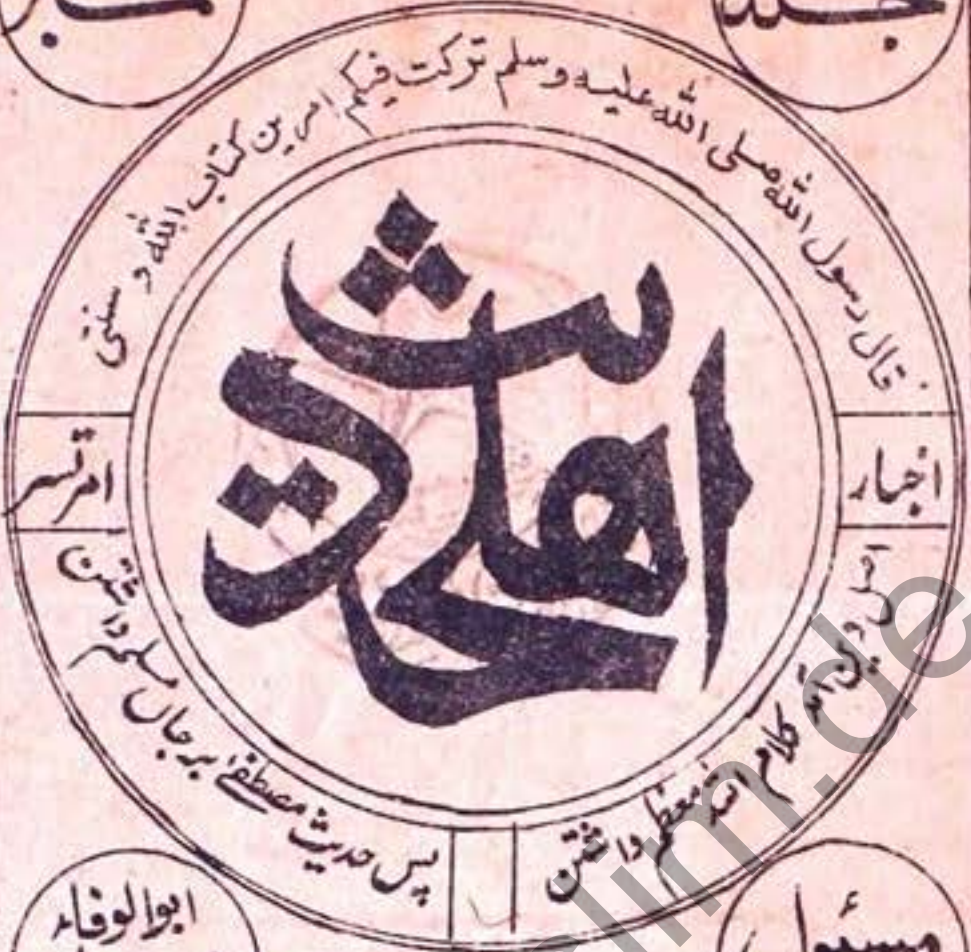 جلد
نمبر
قال رسول الله صلى الله عليه وسلم تركت فيكم امرين كتاب الله و سنتى
اخبار
اهلحدیث
امرتسر
اصل دین آمد کلام اللہ معظم داشتن
پس حدیث مصطفےٰ بر جاں مسلم داشتن
مسئول
ابوالوفاء